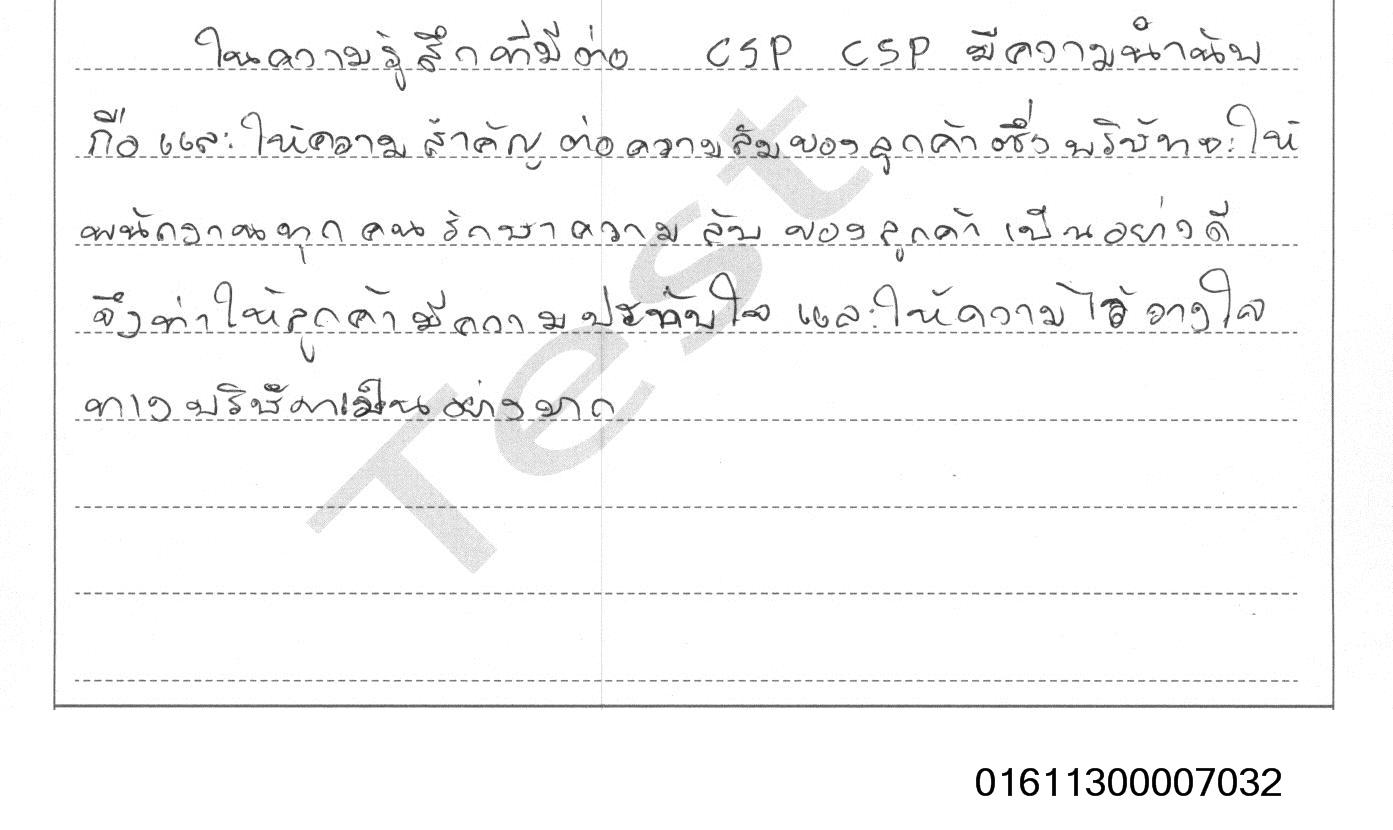 ในความรู้สึกที่มีต่อ CSP CSP มีความน่านับ
ถือ และให้ความสำคัญต่อความลับของลูกค้า ซึ่งบริษัทจะให้
พนักงานทุกคนรักษาความลับของลูกค้าเป็นอย่างดี
จึงทำให้ลูกค้ามีความประทับใจ และให้ความไว้วางใจ
ทางบริษัทเป็นอย่างมาก
Test
01611300007032